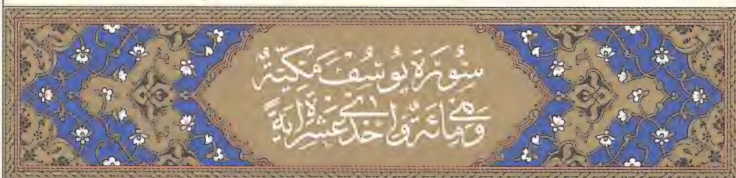 سُورَةُ يُوسُفَ مَكِّيَّةٌ
وَهِيَ مِائَةٌ وَإِحْدَى عَشْرَةَ آيَةً